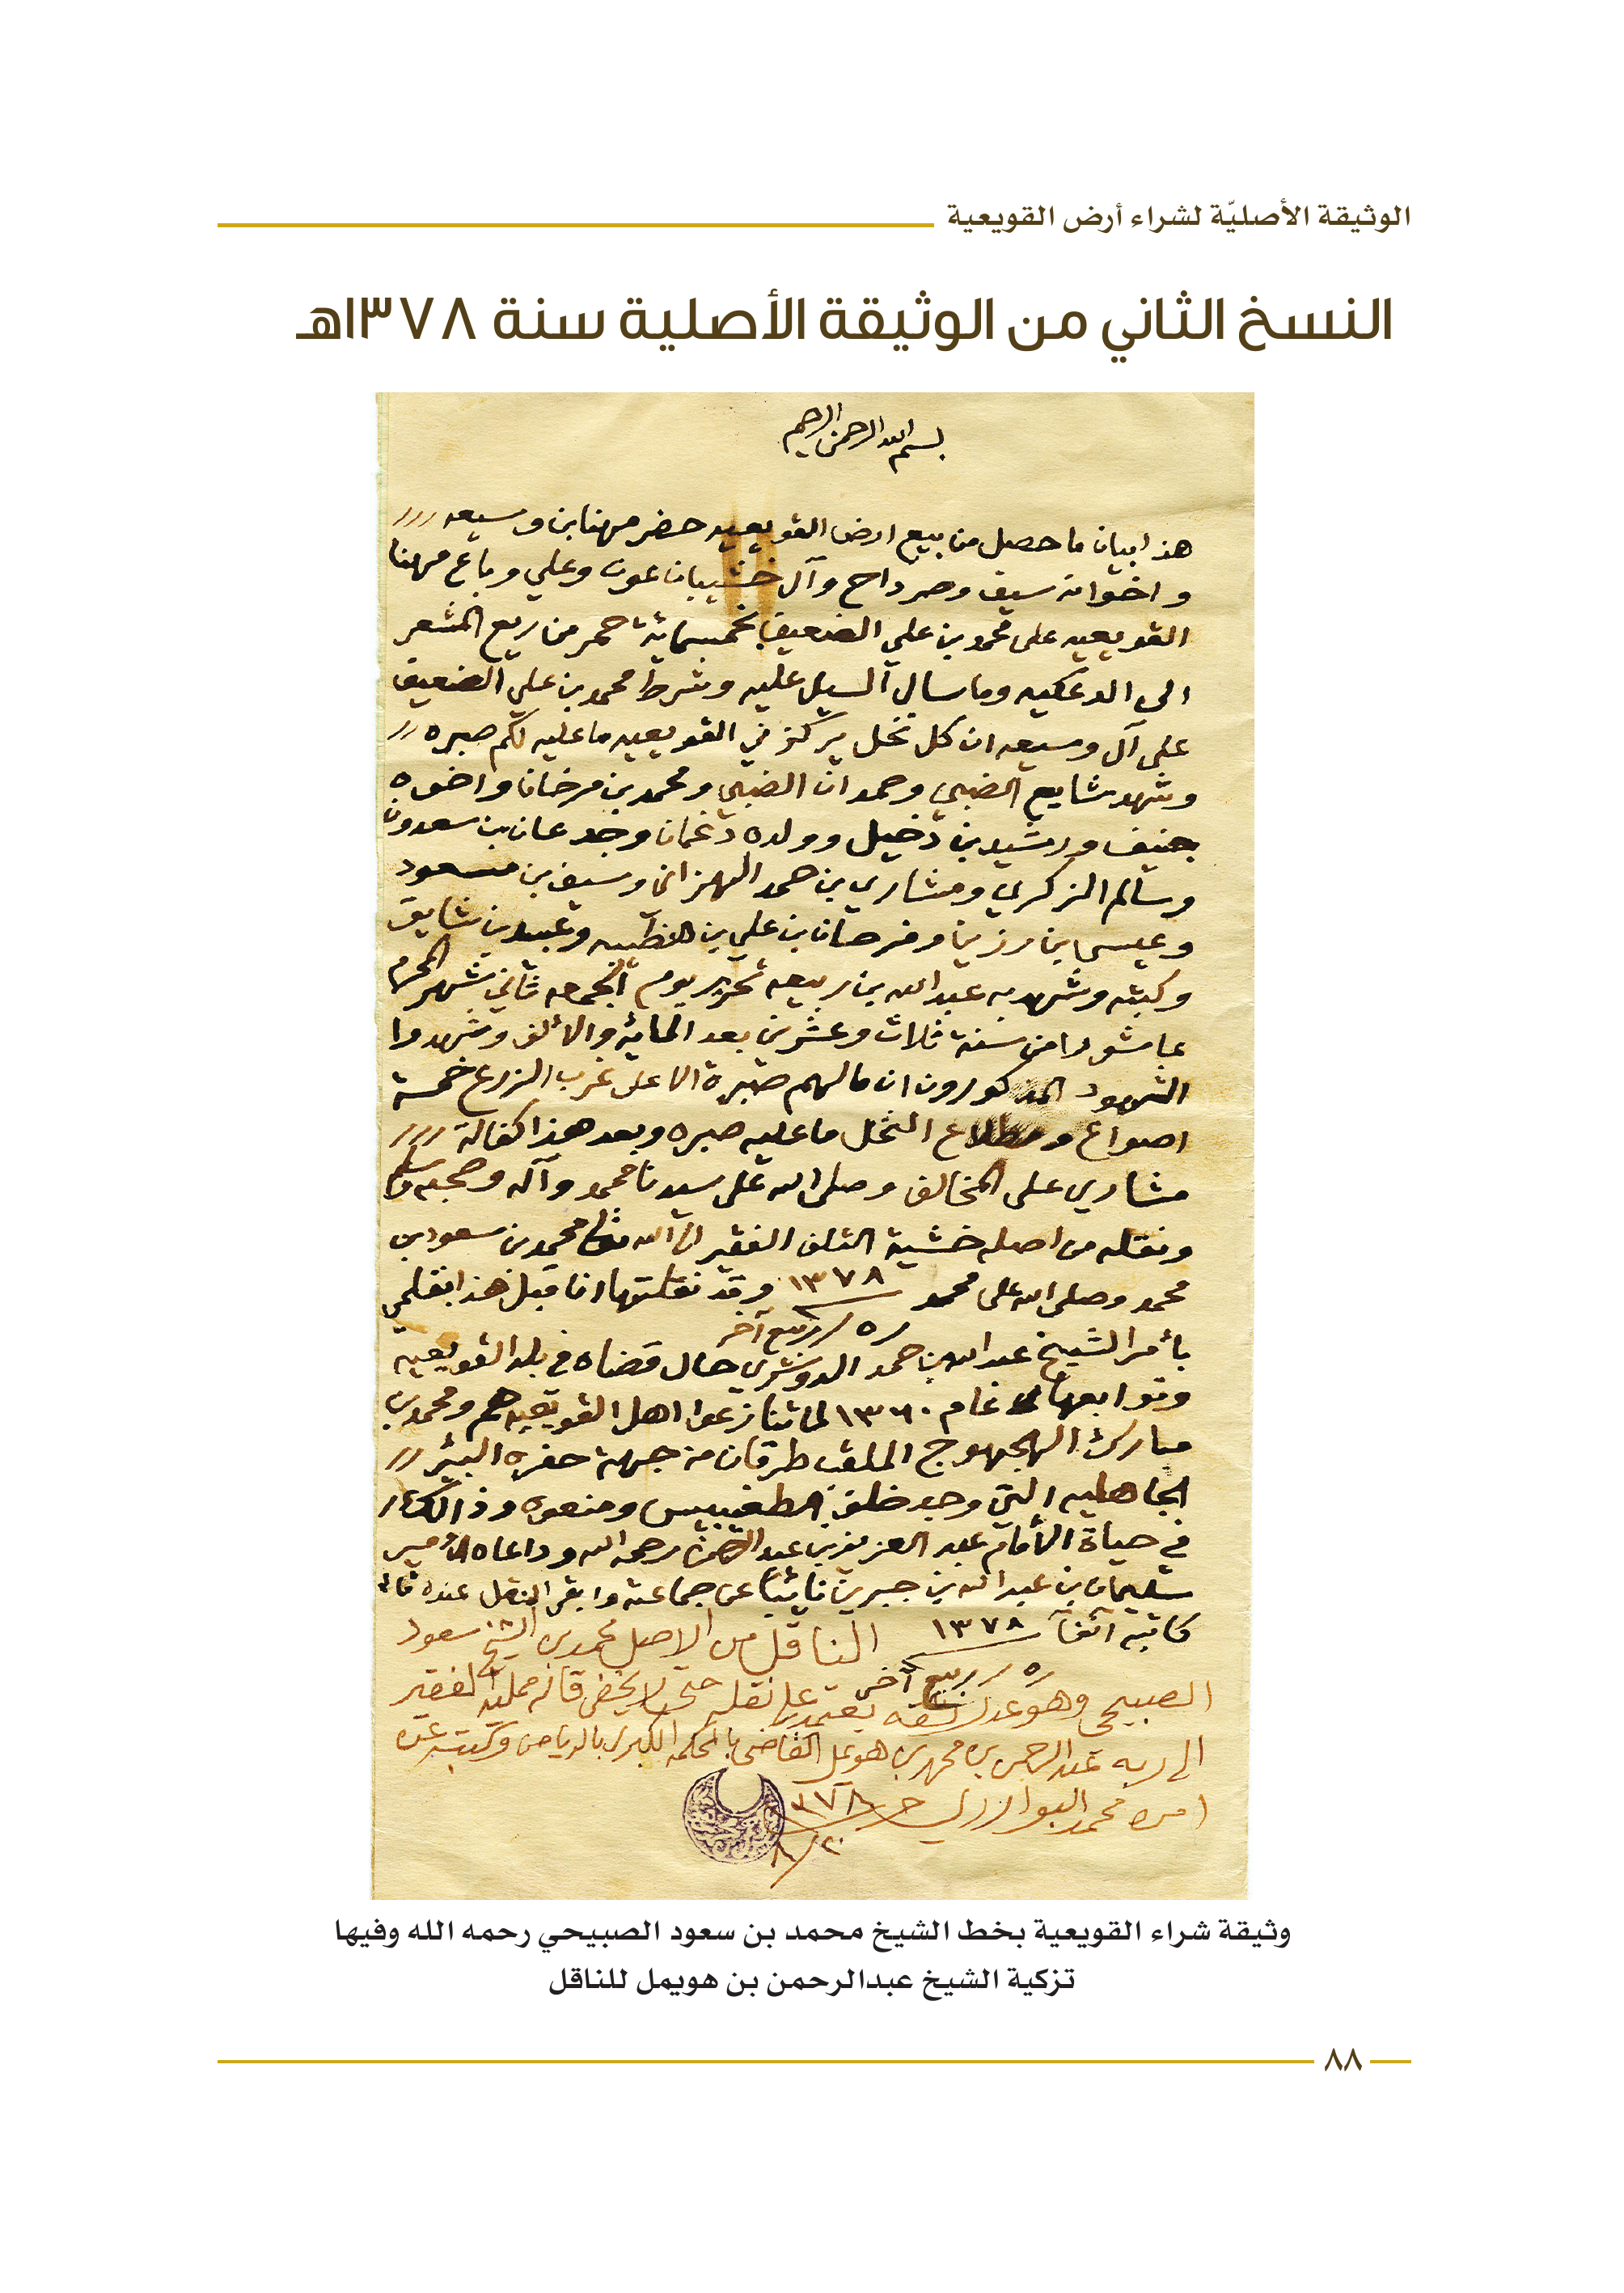 الوثيقة الأصليّة لشراء أرض القويعية
النسخ الثاني من الوثيقة الأصلية سنة ١٣٧٨هـ
بسم الله الرحمن الرحيم
هذا بيان ما حصل من بيع ارض القويعيه حضر مهنا بن وسيعه
واخوانه سيف وصرداح وآل خشيبان عون وعلي وباع مهنا
القويعيه على محمد بن علي الضعيفي بخمسمائة حمر من ريع المشعر
الى الدعكيه وما سال السيل عليه وشرط محمد بن علي الضعيفي
على آل وسيعه ان كل نخل يركز في القويعيه ما عليه لكم صبره
وشهد شايع الضبي وحمدان الضبي ومحمد بن مرخان واخوه
جنيف ورشيد بن دخيل وولده دغمان وجدعان بن سعدون
وسالم الزكري ومشاري بن حمد الهزاني وسيف بن مسعود
وعيسى بن رزين وفرحان بن علي بن وعبيد بن شايق
وكتبه وشهد به عبدالله بن ربيعه تحرير يوم الجمعه ثاني شهر المحرم
عاشورا من سنة ثلاث وعشرين بعد المائة والألف وشهدوا
الشهود المذكورون ان مالهم صبرة الا على غرب الزرع خمسة
اصواع ومطلاع النخل ما عليه صبره وبعد هذا كفالة
مشاري على المخالف وصلى الله على سيدنا محمد وآله وصحبه وسلم
ونقله من اصله خشية التلف الفقير الى الله محمد بن سعود بن
محمد وصلى الله على محمد ١٣٧٨ وقد نقلتها انا قبل هذا بقلمي
٥ ربيع آخر
بأمر الشيخ عبدالله بن حمد الدوسري حال قضاه في بلد القويعيه
وتوابعها عام ١٣٦٠ لما تنازعوا اهل القويعيه هم ومحمد بن
مبارك الهجهوج الملقب طرقان من جهة حفره البئر
الجاهليه التي وجد خلف الطغيبيس ومنعوه وذالك
في حياة الأمام عبد العزيز بن عبد الرحمن رحمه الله وداعاه الأمير
سليمان بن عبدالله بن جبرين نائبا عن جماعته وابقى النقل عنده قاله
كاتبه آنفآ ١٣٧٨
٥ ربيع آخر
الناقل من الاصل محمد بن الشيخ سعود
الصبيحي وهو عدل ثقه يعتمد على نقله حتى لا يخفى قاله ممليه الفقير
الى ربه عبدالرحمن بن محمد بن هويمل القاضي بالمحكمه الكبرى بالرياض وكتبه عن
امره محمد البواردي ١٣٧٨
٨/٢٠
وثيقة شراء القويعية بخط الشيخ محمد بن سعود الصبيحي رحمه الله وفيها
تزكية الشيخ عبدالرحمن بن هويمل للناقل
٨٨